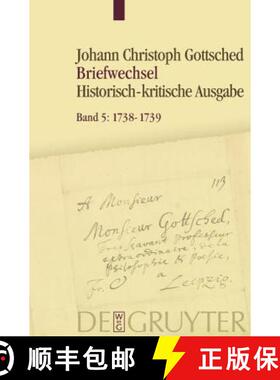 Johann Christoph Gottsched
Briefwechsel
Historisch-kritische Ausgabe
Band 5: 1738-1739
113
A Monsieur
Monsieur Gottsched,
Tres savant Professeur
extraordinaire, de la
Philosophie & Poesie,
Fr. à
Leipzig.
DE GRUYTER
WDEG